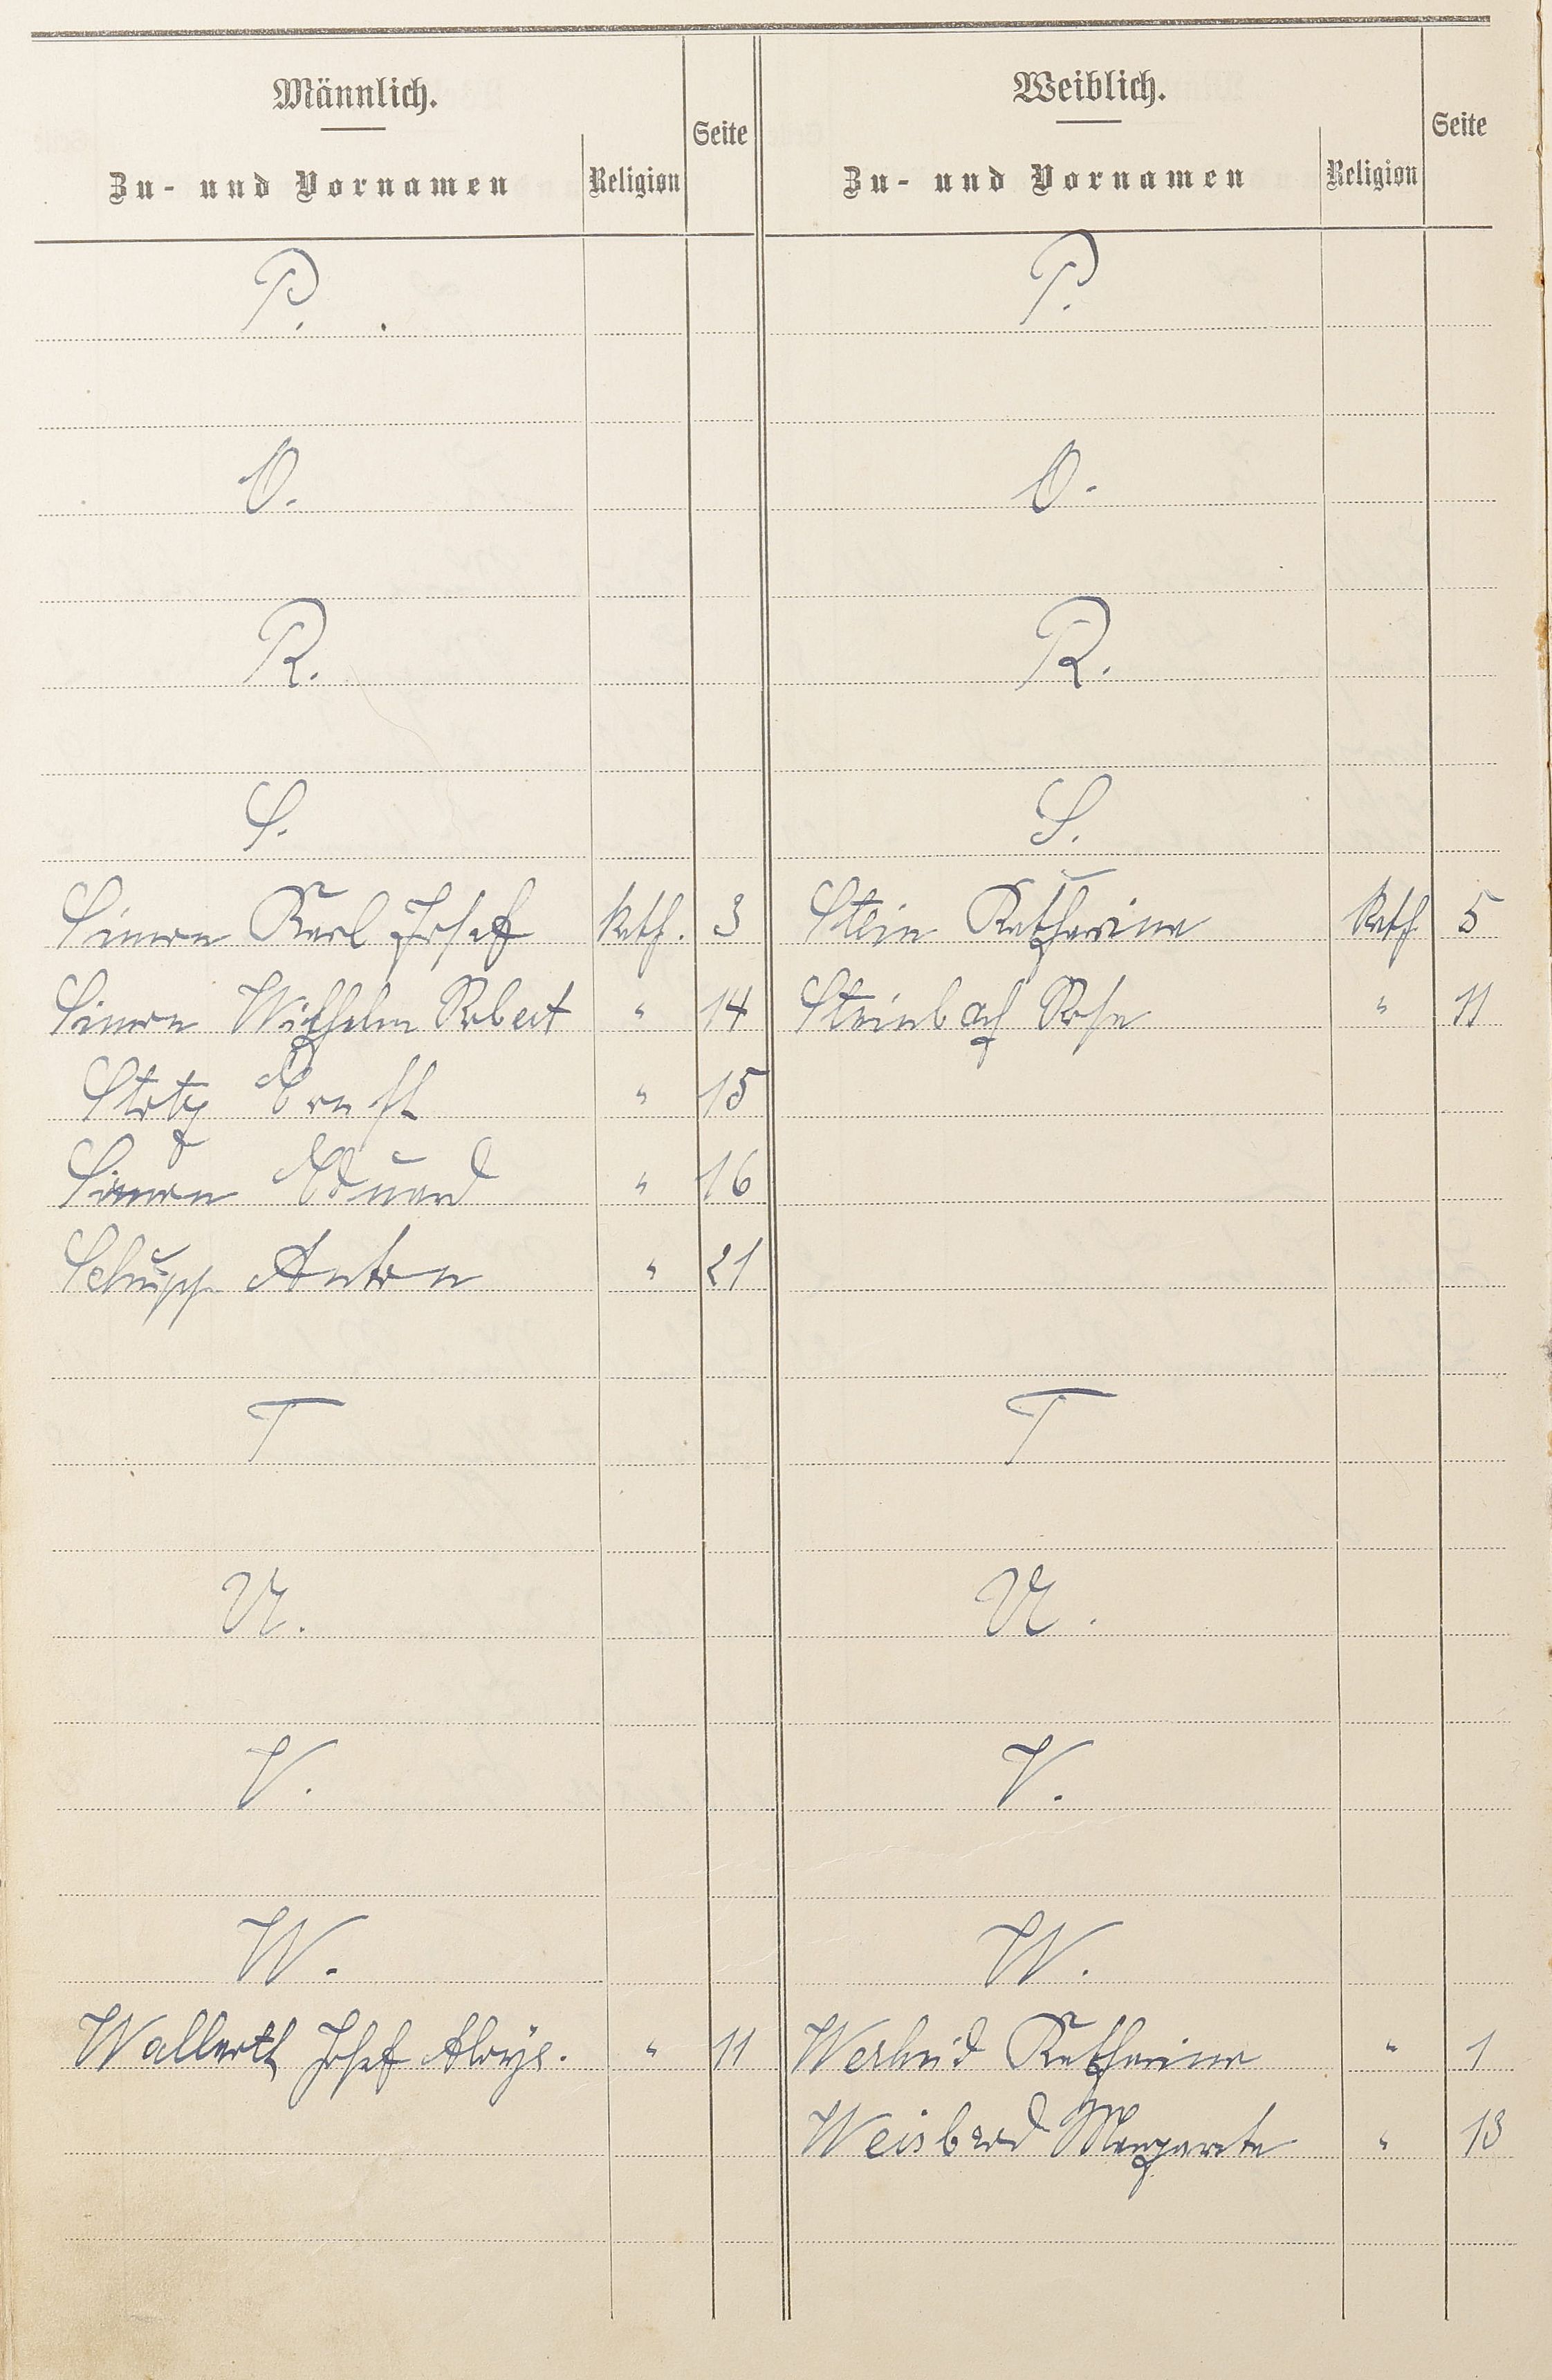 Männlich.
Zu- und Vornamen
Religion
Seite
P.
O.
R.
S.
Simon Karl Josef Kath. 3
Simon Wilhelm Robert " 14
Stotz Ernst " 15
Simon Eduard " 16
Schupp Anton " 21
T
U.
V.
W.
Wallerth Josef Aloys. " 11
Weiblich.
Zu- und Vornamen
Religion
Seite
P.
O.
R.
S.
Stein Katharina Kath. 5
Steinbach Rosa " 11
T
U.
V.
W.
Katharina " 1
Weisbrod Margareta " 13